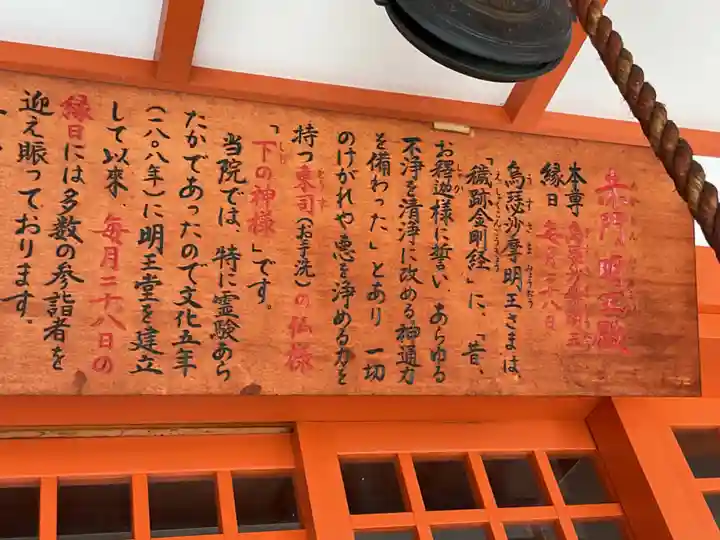 赤門明王殿
本尊 烏瑟沙摩明王
縁日 毎月二十八日
烏瑟沙摩明王さまは、
うすさまみょうおう
「穢跡金剛経」に、「昔、
お釈迦様に誓い、あらゆる
しゃか
不浄を清浄に改める神通力
を備わった」とあり 一切
のけがれや悪を浄める力を
持つ東司(お手洗)の仏様
とうす
「下の神様」です。
しも
当院では、特に霊験あら
たかであったので文化五年
(一八〇八年)に明王堂を建立
して以来、毎月二十八日の
縁日には多数の参詣者を
迎え賑っております。